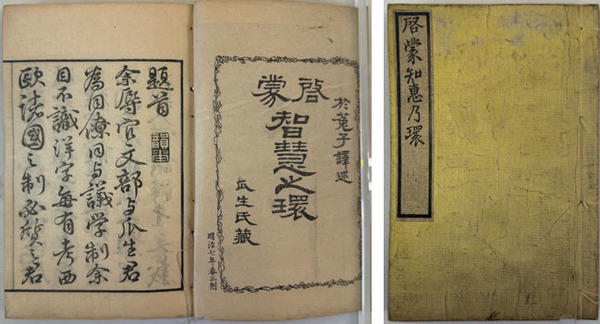 啓蒙知惠乃環
於菟子譯述
啓蒙
智慧之環
瓜生氏藏
明治七年春三刻
題首
余辱官文部与瓜生君
為同僚日与議学制余
目不識洋字毎有考西
欧諸國之制必質之君